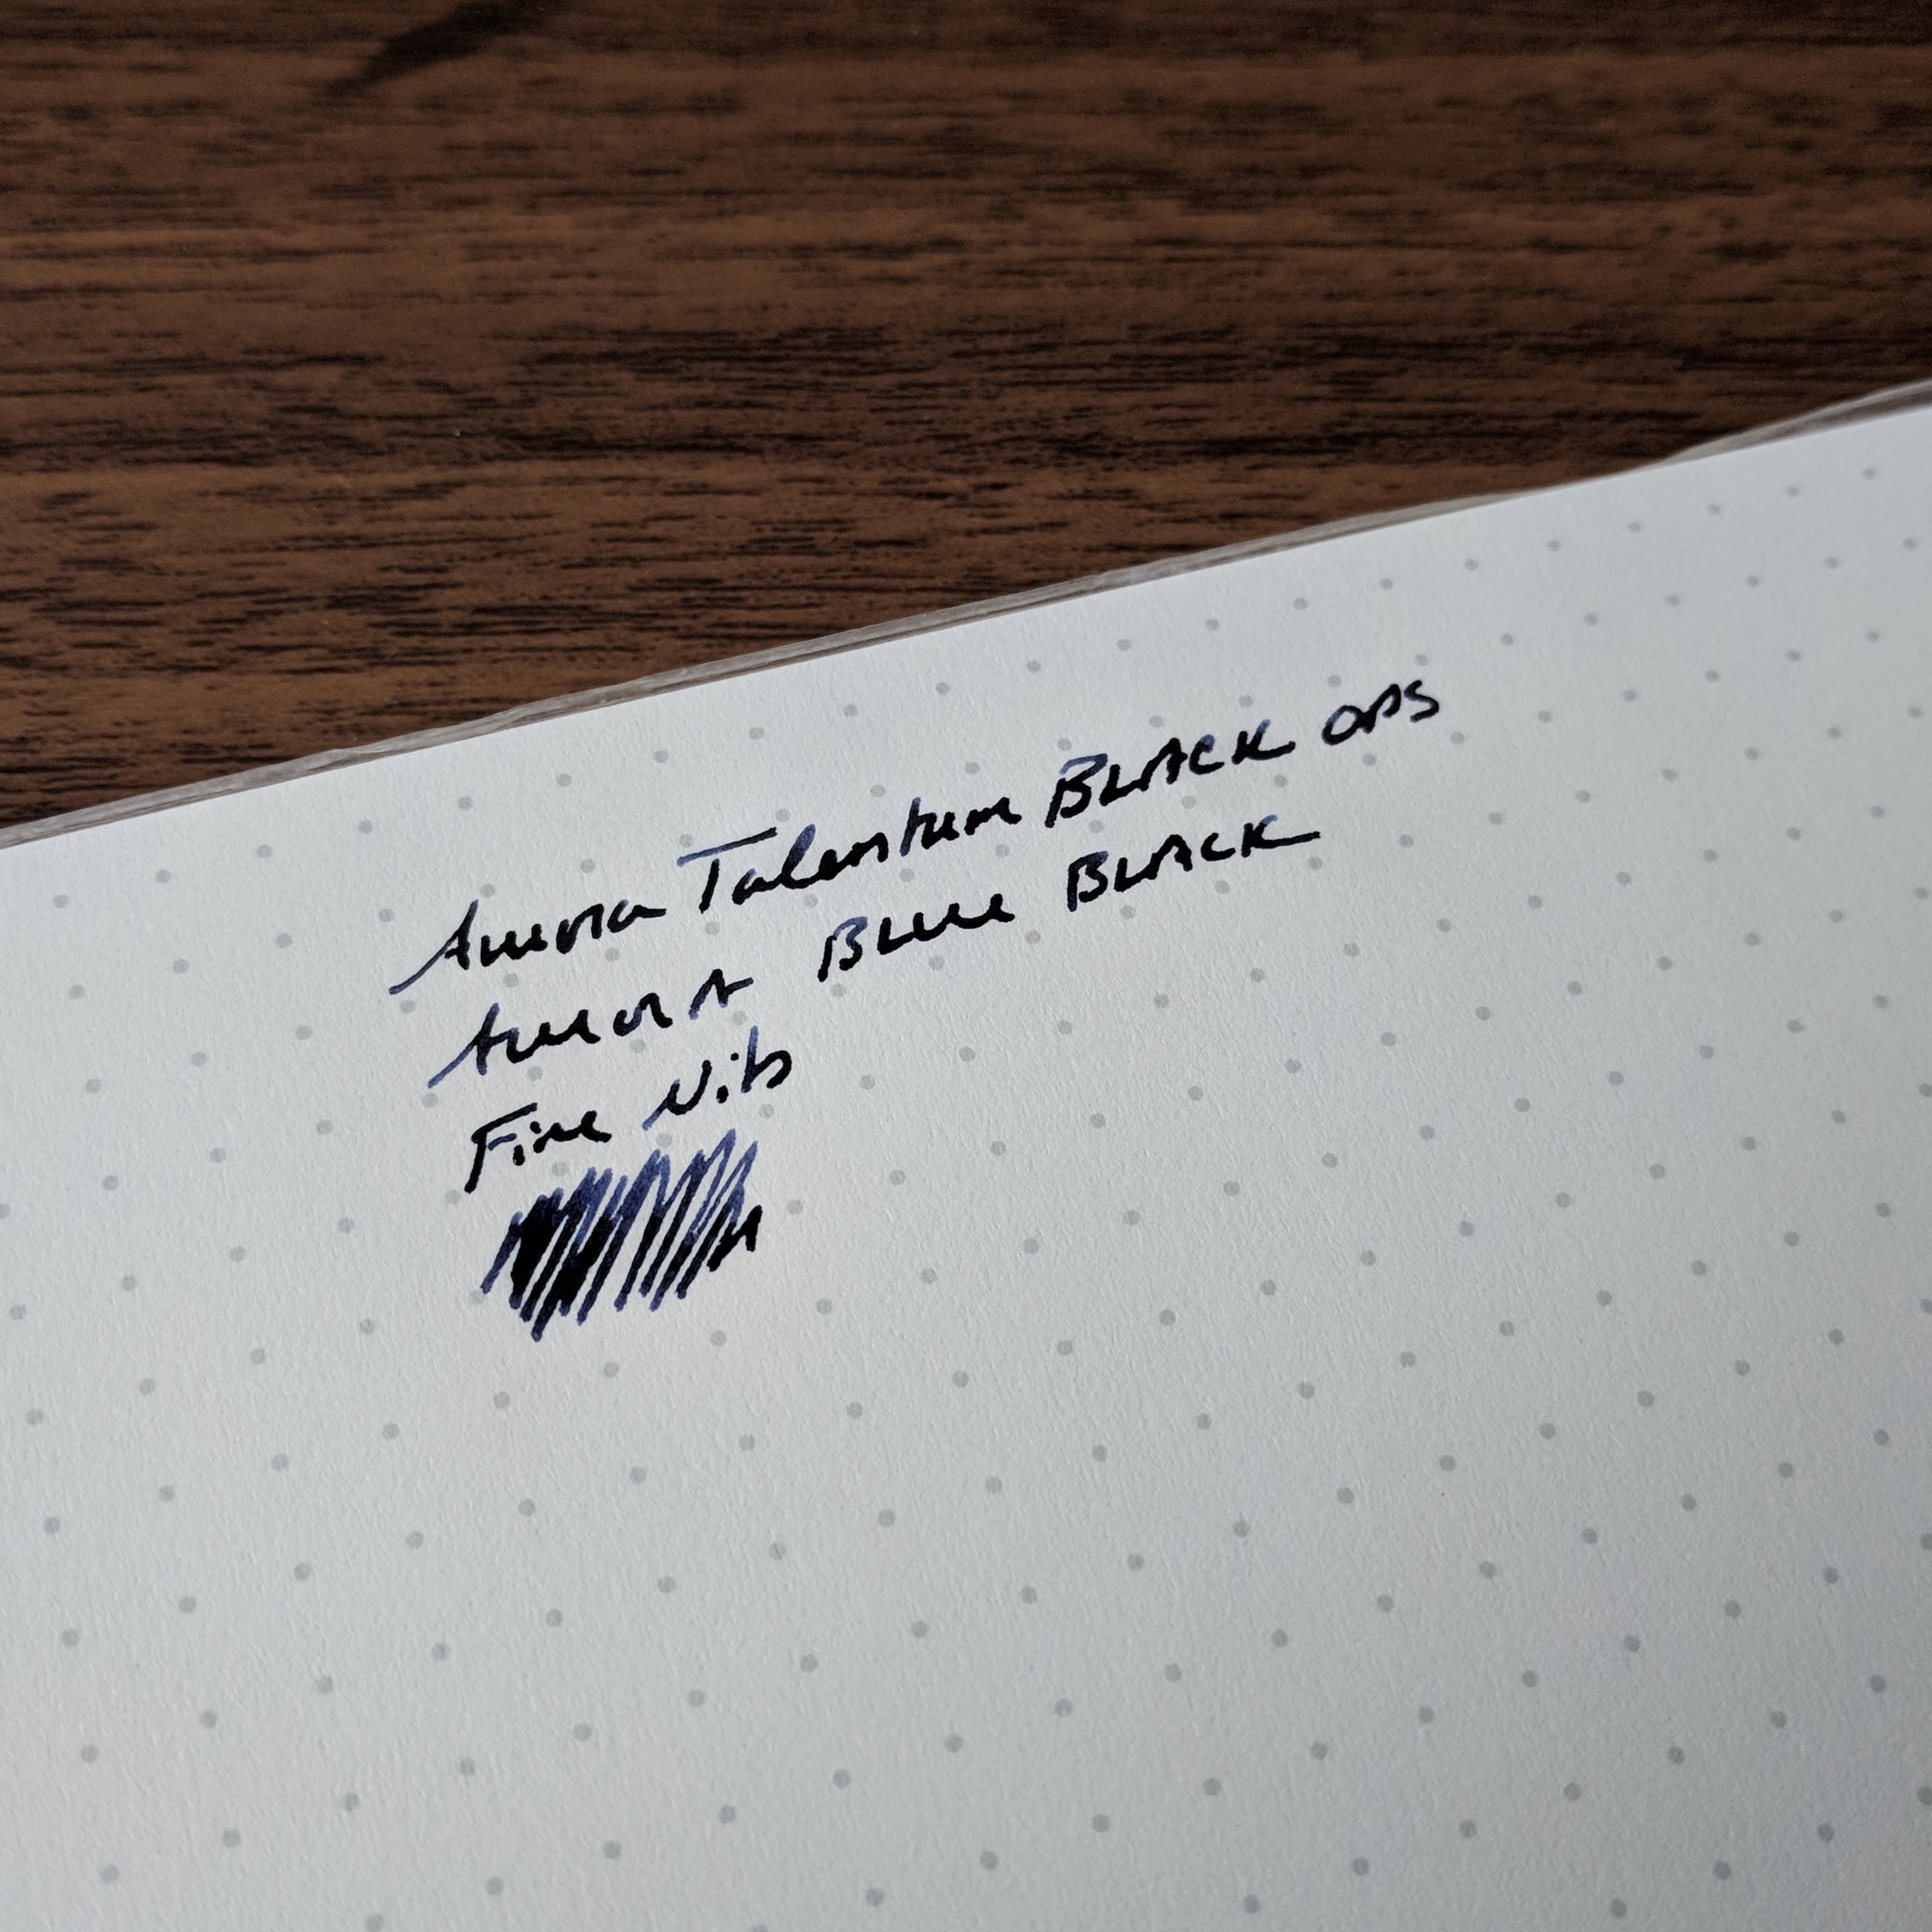 Aurora Talentum BLACK OPS
Aurora Blue BLACK
Fine Nib